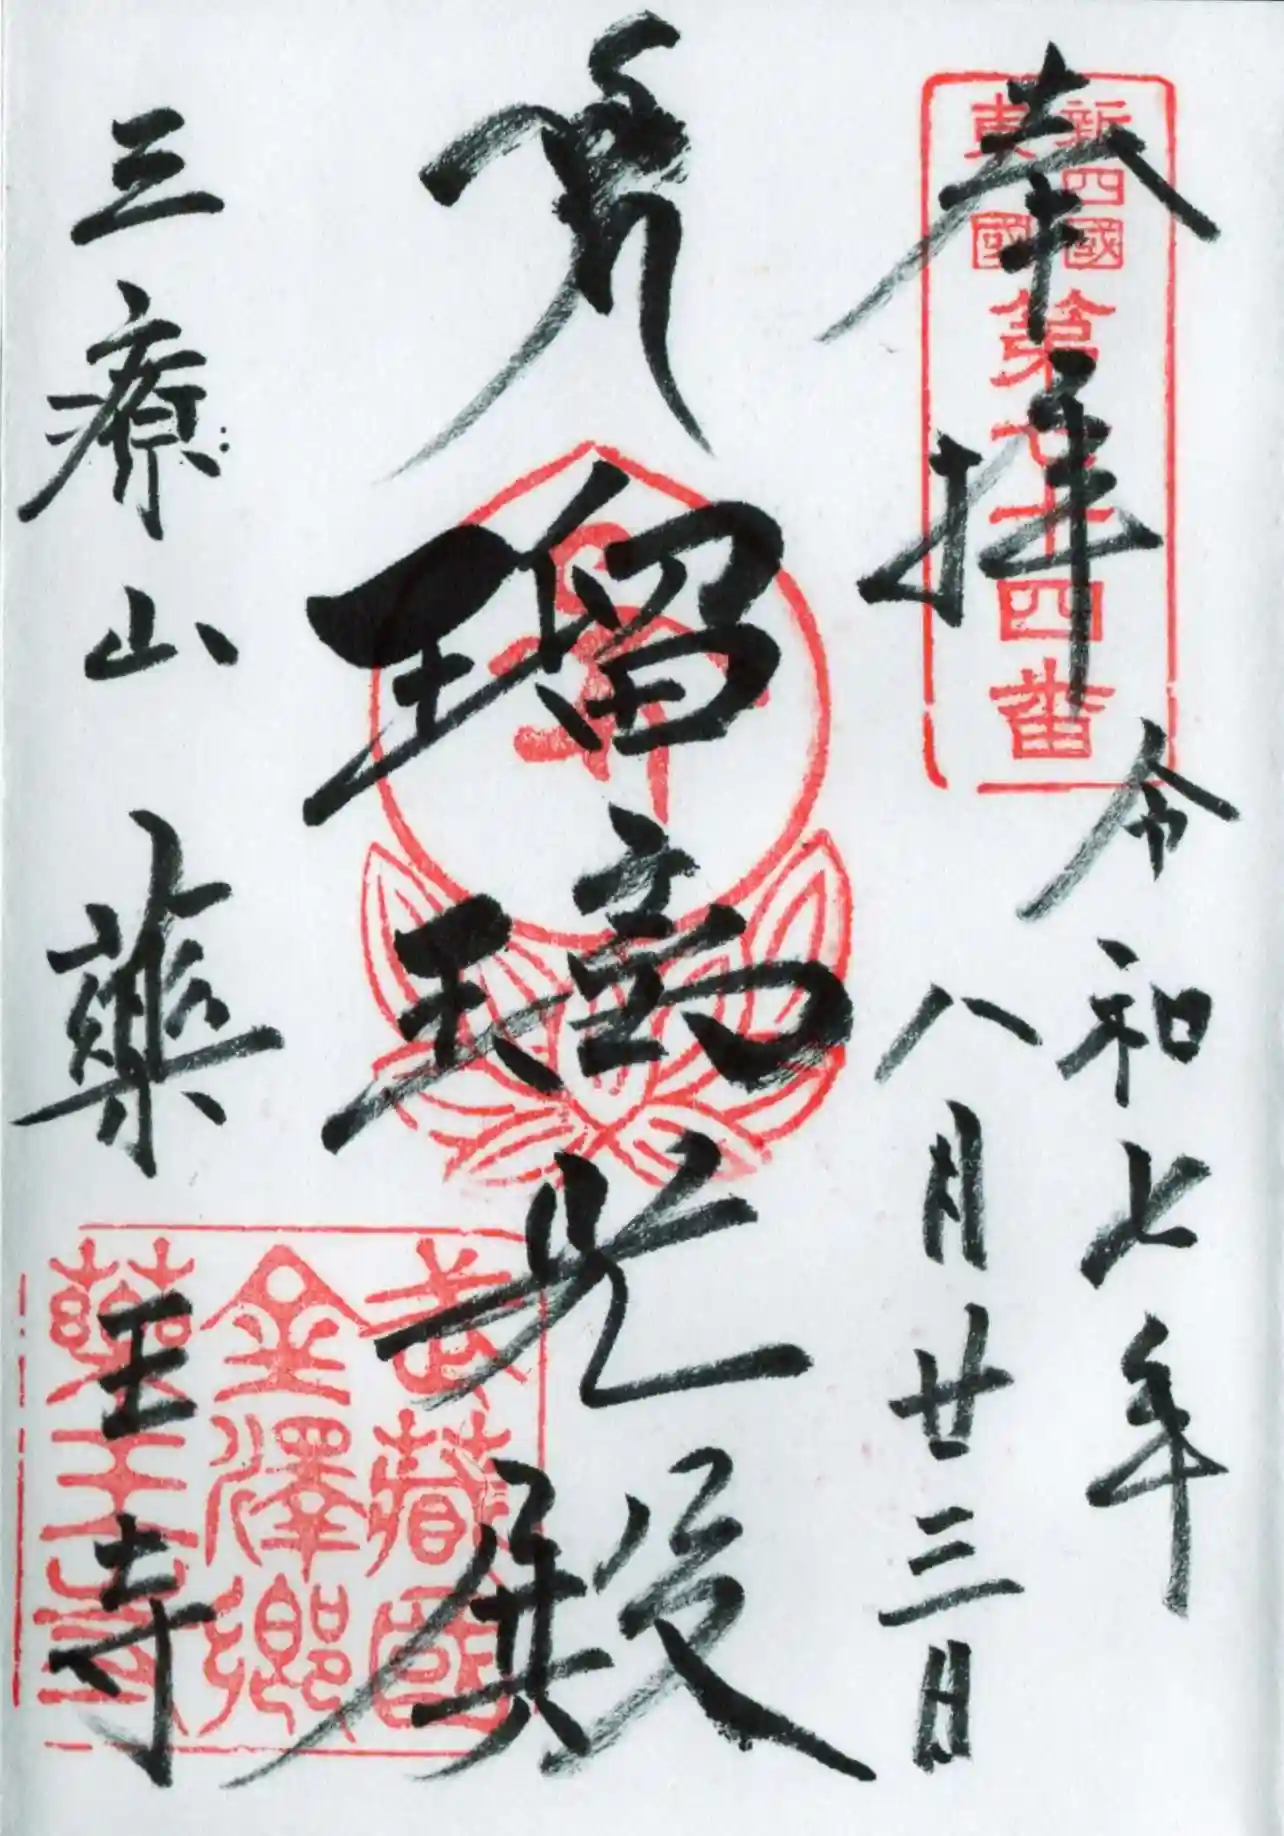 新四國
東國
第七十四番
奉拝
令和七年
八月廿三日
瑠璃光殿
三療山 藥王寺
武藏國
金澤郷
藥王寺